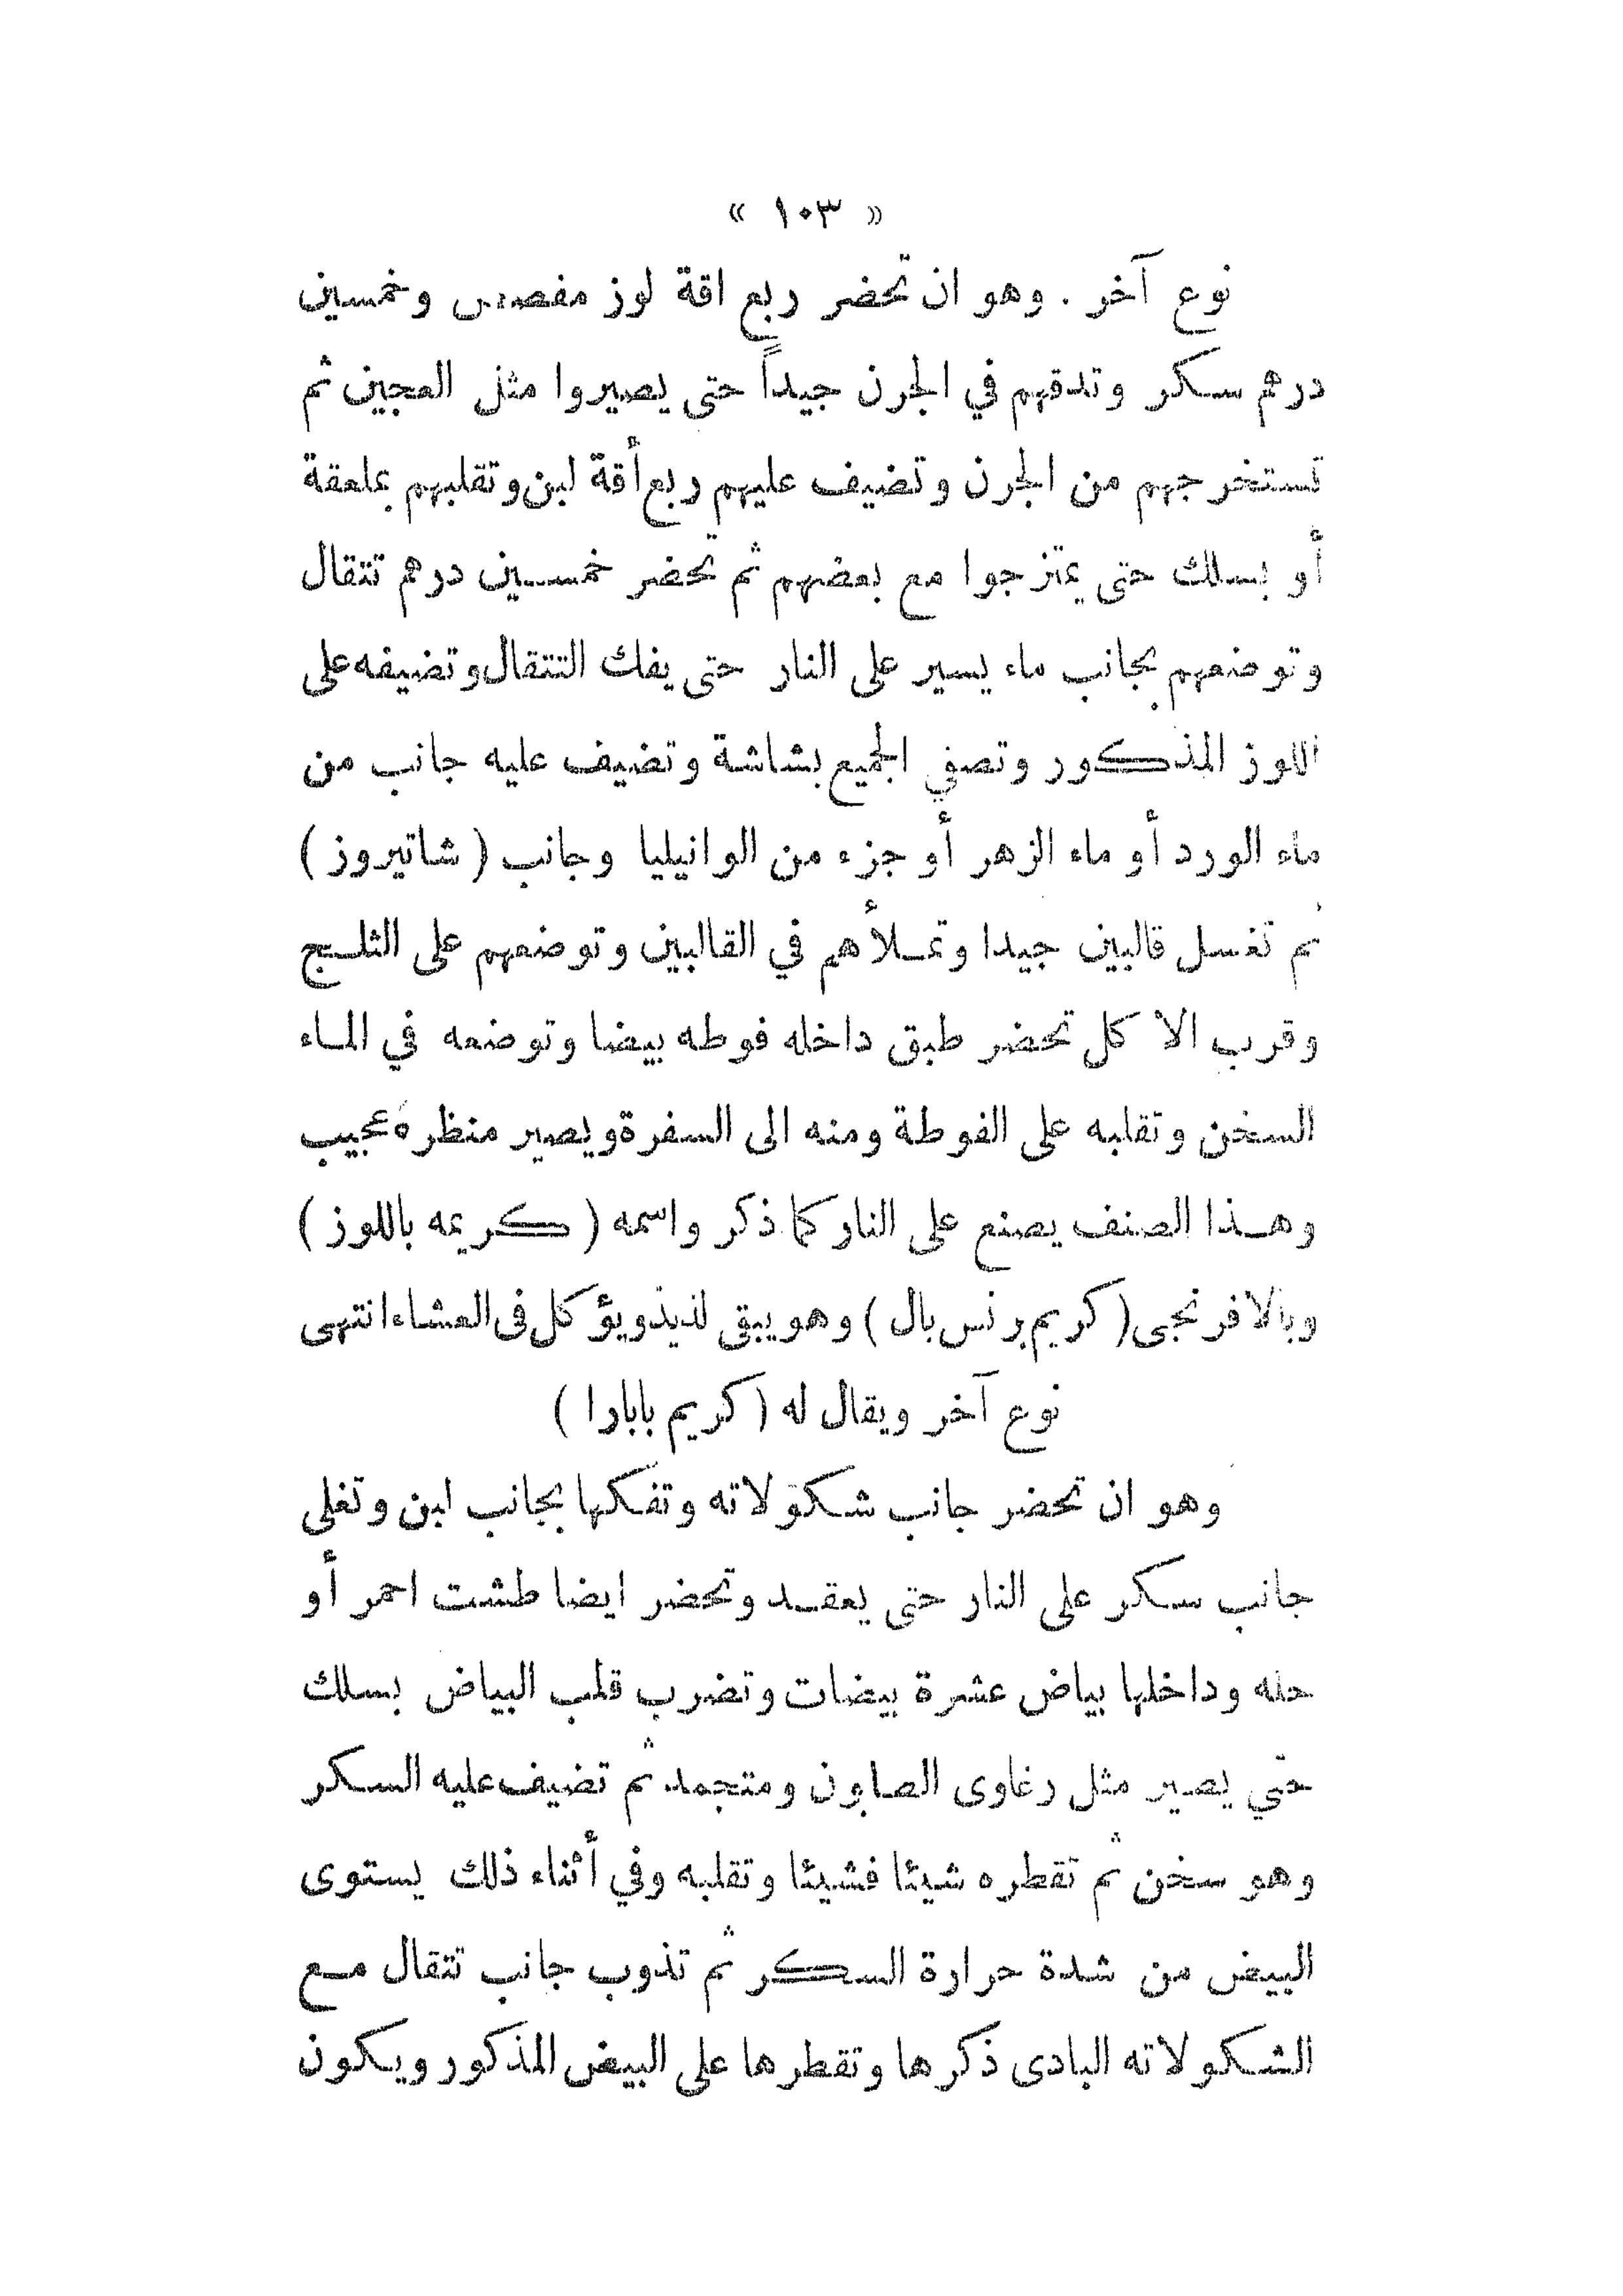 « ١٠٣ »
نوع آخر . وهو ان تحضر ربع اقة لوز مفصص وخمسين
درهم سكر وتدقهم في الجرن جيداً حتى يصيروا مثل العجين ثم
تستخرجهم من الجرن وتضيف عليهم ربع أقة لبن وتقلبهم بملعقة
أو بسلك حتى يمتزجوا مع بعضهم ثم تحضر خمسين درهم تتقال
وتوضعهم بجانب ماء يسير على النار حتى يفك التتقال وتضيفه على
اللوز المذكور وتصفي الجميع بشاشة وتضيف عليه جانب من
ماء الورد أو ماء الزهر أو جزء من الوانيليا وجانب ( شاتيروز )
ثم تغسل قالبين جيدا وتملأهم في القالبين وتوضعهم على الثلج
وقرب الاكل تحضر طبق داخله فوطه بيضا وتوضعه في الماء
السخن وتقلبه على الفوطة ومنه الى السفرة ويصير منظره عجيب
وهذا الصنف يصنع على النار كما ذكر واسمه ( كريمه باللوز )
وبالافرنجى ( كريم برنس بال ) وهو يبقى لذيذ ويؤكل فى العشاء انتهى
نوع آخر ويقال له ( كريم بابارا )
وهو ان تحضر جانب شكولاته وتفكها بجانب لبن وتغلى
جانب سكر على النار حتى يعقد وتحضر ايضا طشت احمر أو
حله وداخلها بياض عشرة بيضات وتضرب قلب البياض بسلك
حتي يصير مثل رغاوى الصابون ومتجمد ثم تضيف عليه السكر
وهو سخن ثم تقطره شيئا فشيئا وتقلبه وفي أثناء ذلك يستوى
البيض من شدة حرارة السكر ثم تذوب جانب تتقال مع
الشكولاته البادى ذكرها وتقطرها على البيض المذكور ويكون